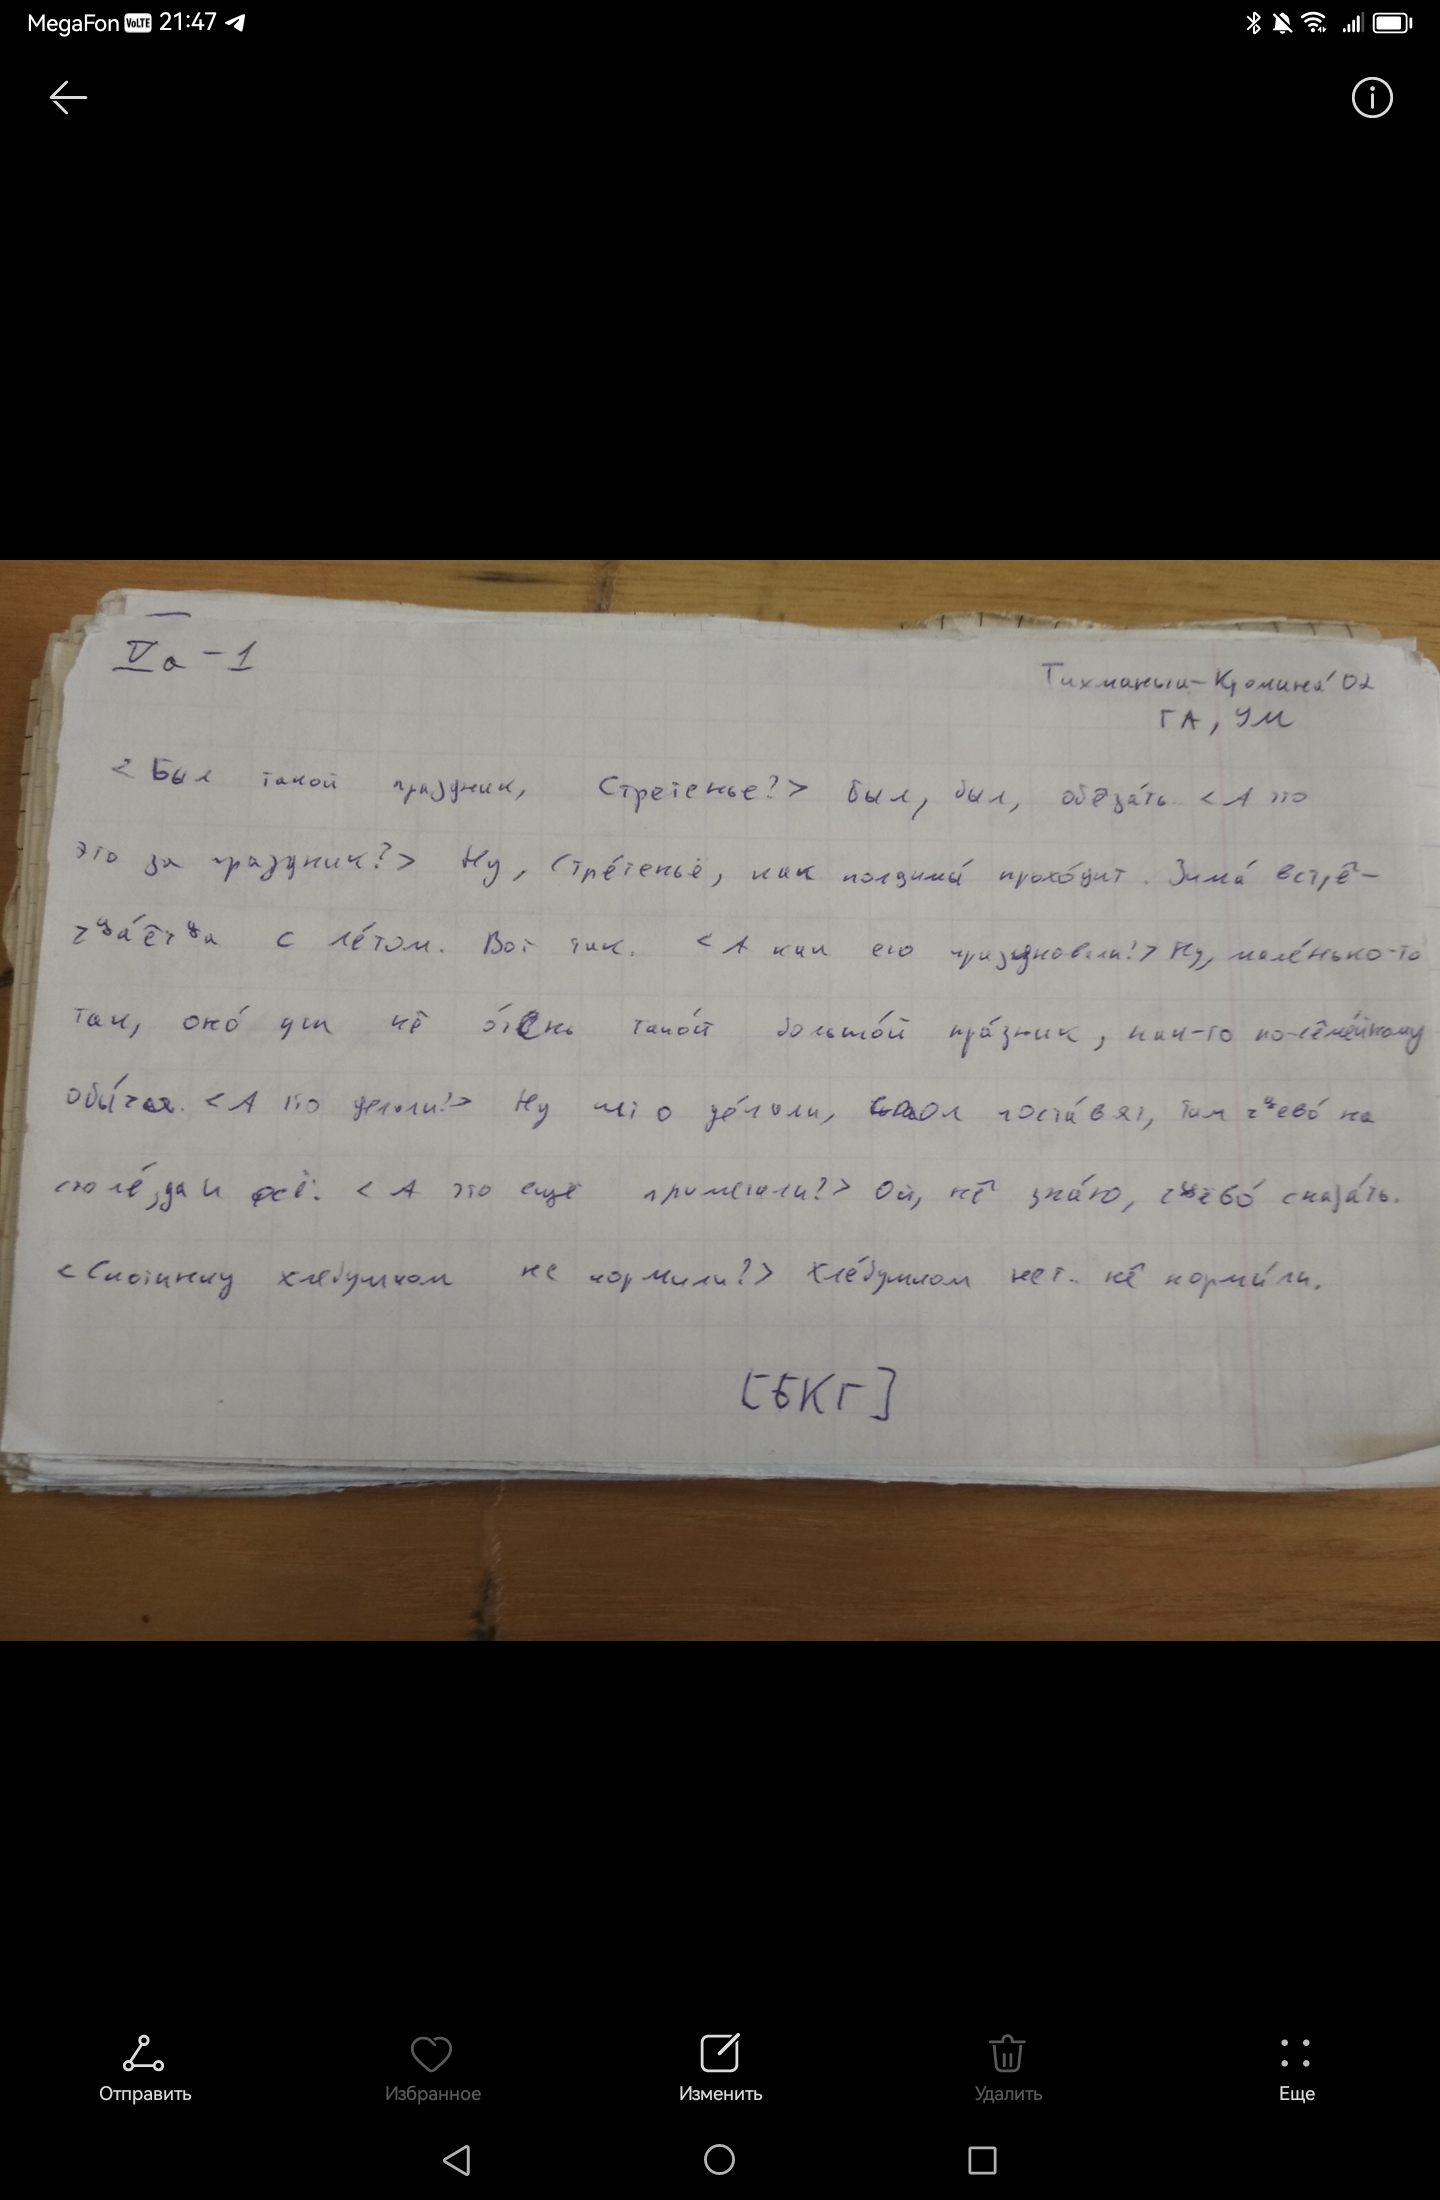 MegaFon VoLTE 21:47
Va-1
Тихманьга-Кромина'02
ГА, УМ
<Был такой праздник, Стретенье?> Был, был, обеза́ть. <А что
это за праздник?> Ну, Стре́теньё, как ползимы́ прохо́дит. Зима́ встре̂-
чᶣа́ётчᶣа с ле́том. Вот так. <А как его праздновали?> Ну, мале́нько-то
так, оно́ дак не̂ о́чень тако́й большо́й пра́зник, как-то по-се̂ме́йному
обы́чая. <А что делали?> Ну что де́лали, стол поста́вят, там чᶣево́ на
столе́, да и всё. <А что ещё примечали?> Ой, не̂ зна́ю, чᶣево́ сказа́ть.
<Скотинку хлебушком не кормили?> Хле́бушком нет. не̂ корми́ли.
[БКГ]
Отправить Избранное Изменить Удалить Еще